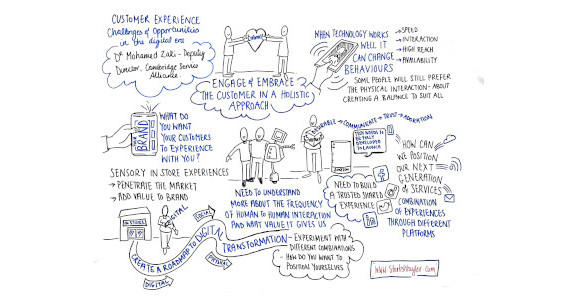 CUSTOMER EXPERIENCE
Challenges & Opportunities
in the digital era
Dr Mohamed Zaki - Deputy
Director, Cambridge Service
Alliance.
ENGAGE & EMBRACE
THE CUSTOMER IN A HOLISTIC
APPROACH
WHEN TECHNOLOGY WORKS
WELL IT
CAN CHANGE
BEHAVIOURS
→ SPEED
→ INTERACTION
→ HIGH REACH
→ AVAILABILITY
SOME PEOPLE WILL STILL PREFER
THE PHYSICAL INTERACTION - ABOUT
CREATING A BALANCE TO SUIT ALL
BRAND
WHAT DO
YOU WANT
YOUR CUSTOMERS
TO EXPERIENCE
WITH YOU?
SENSORY IN STORE EXPERIENCES
→ PENETRATE THE MARKET
→ ADD VALUE TO BRAND
NEED TO UNDERSTAND
MORE ABOUT THE FREQUENCY
OF HUMAN TO HUMAN INTERACTION
AND WHAT VALUE IT GIVES US
→ COMMUNICATE → TRUST → ADOPTION
NEED TO BUILD
A TRUSTED SHARED
EXPERIENCE
HOW CAN
WE POSITION
OUR NEXT
GENERATION
of SERVICES
COMBINATION
OF EXPERIENCES
THROUGH DIFFERENT
PLATFORMS
STORE
DIGITAL
SOCIAL
PHYSICAL
DIGITAL
CREATE A ROADMAP TO DIGITAL
TRANSFORMATION - EXPERIMENT WITH
DIFFERENT COMBINATIONS
- HOW DO YOU WANT TO
POSITION YOURSELVES